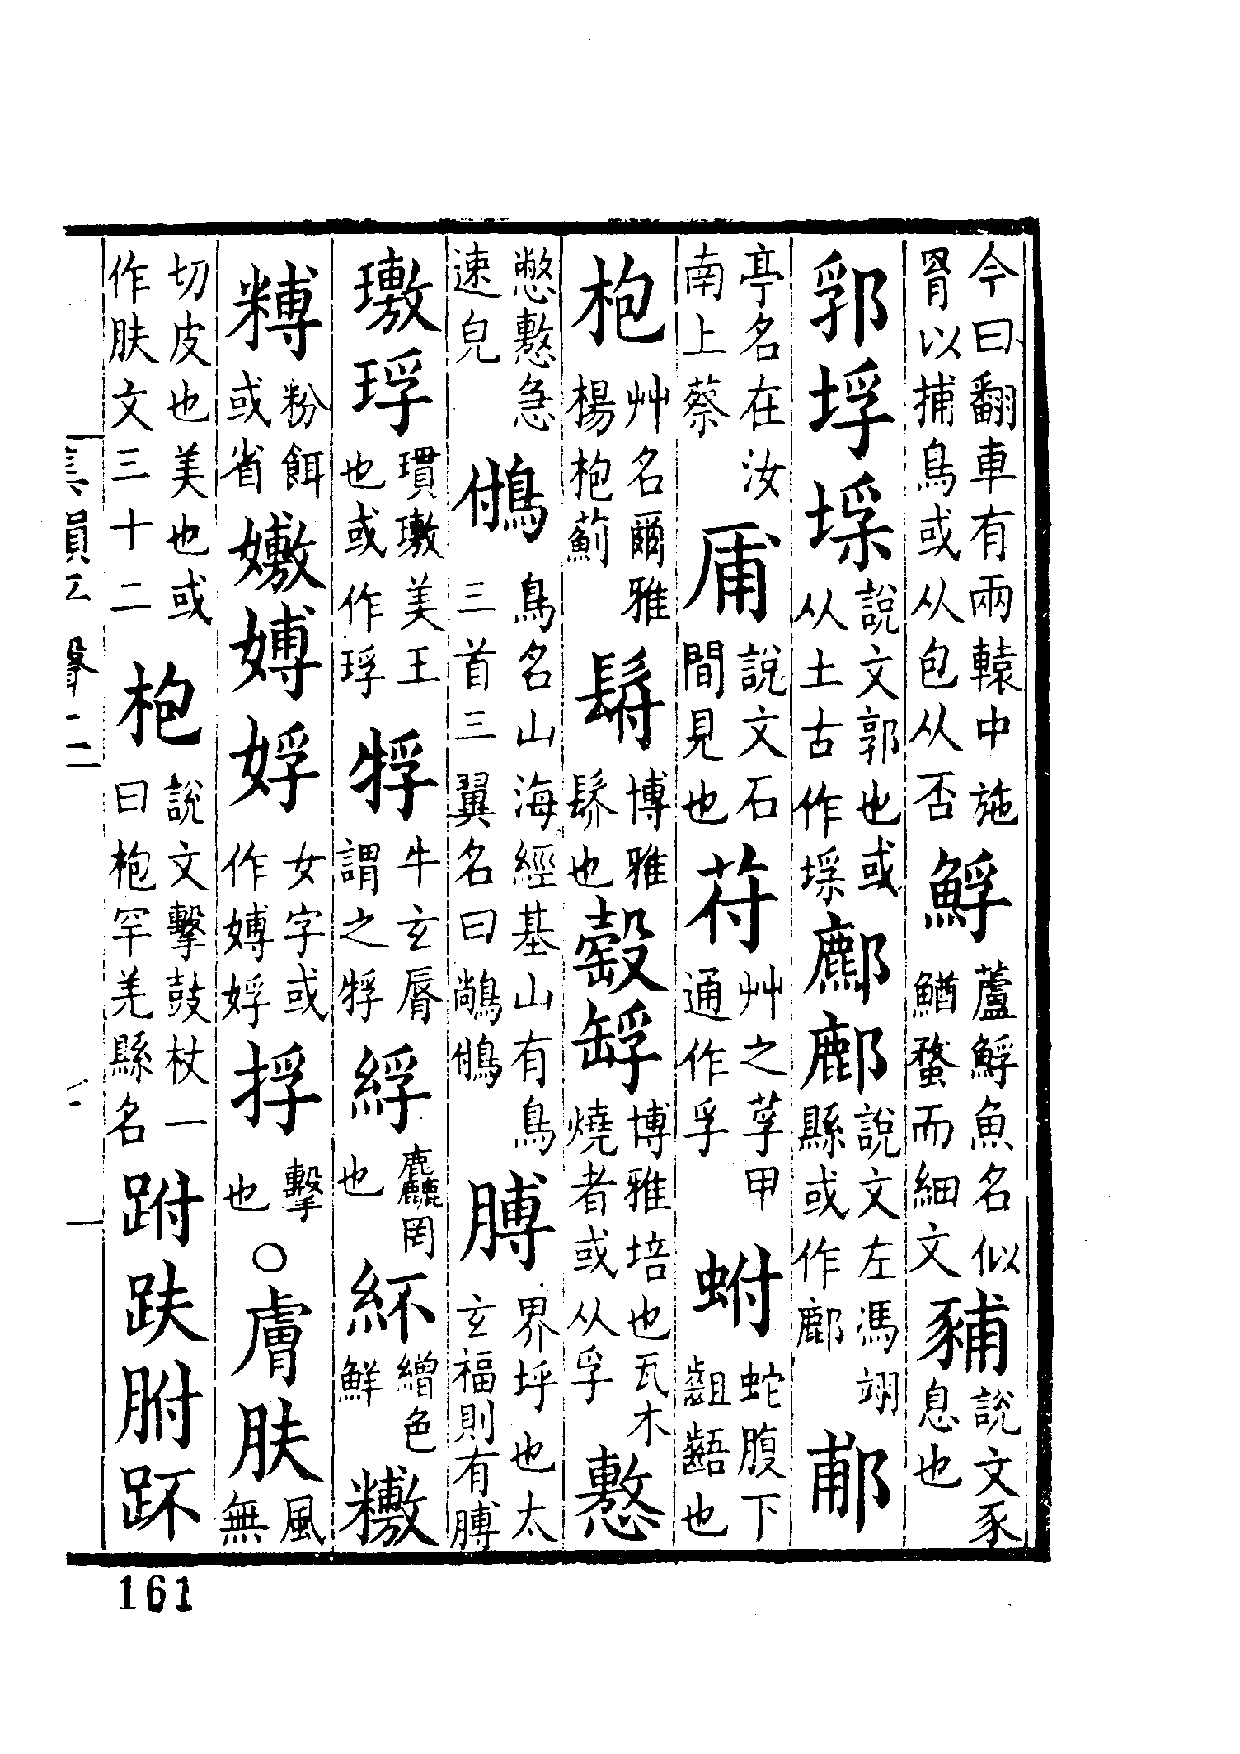 今曰翻車有兩轅中施
罥以捕鳥或从包从否
䱐
蘆䱐魚名似
鰌蝥而細文
豧
說文豕
息也
郛垺
說文郭也或
从土古作
鄜
說文左馮翊
縣或作鄜
郙
亭名在汝
南上蔡
㕊
說文石
間見也
苻
艸之莩甲
通作孚
蚹
蛇腹下
齟齬也
枹
艸名爾雅
楊枹薊
博雅
也
博雅培也瓦木
燒者或从孚
懯
憋懯急
速皃
鳥名山海經基山有鳥
三首三翼名曰
膊
界坪也太
玄福則有膊
琈
美玉
也或作琈
牛玄脣
謂之
綒
麤罔
也
紑
繒色
鮮
粉餌
或省
女字或
作
捊
擊
也
○膚肤
風無
切皮也美也或
作肤文三十二
枹
說文擊鼓杖一
曰枹罕羌縣名
跗趺胕䟔
161